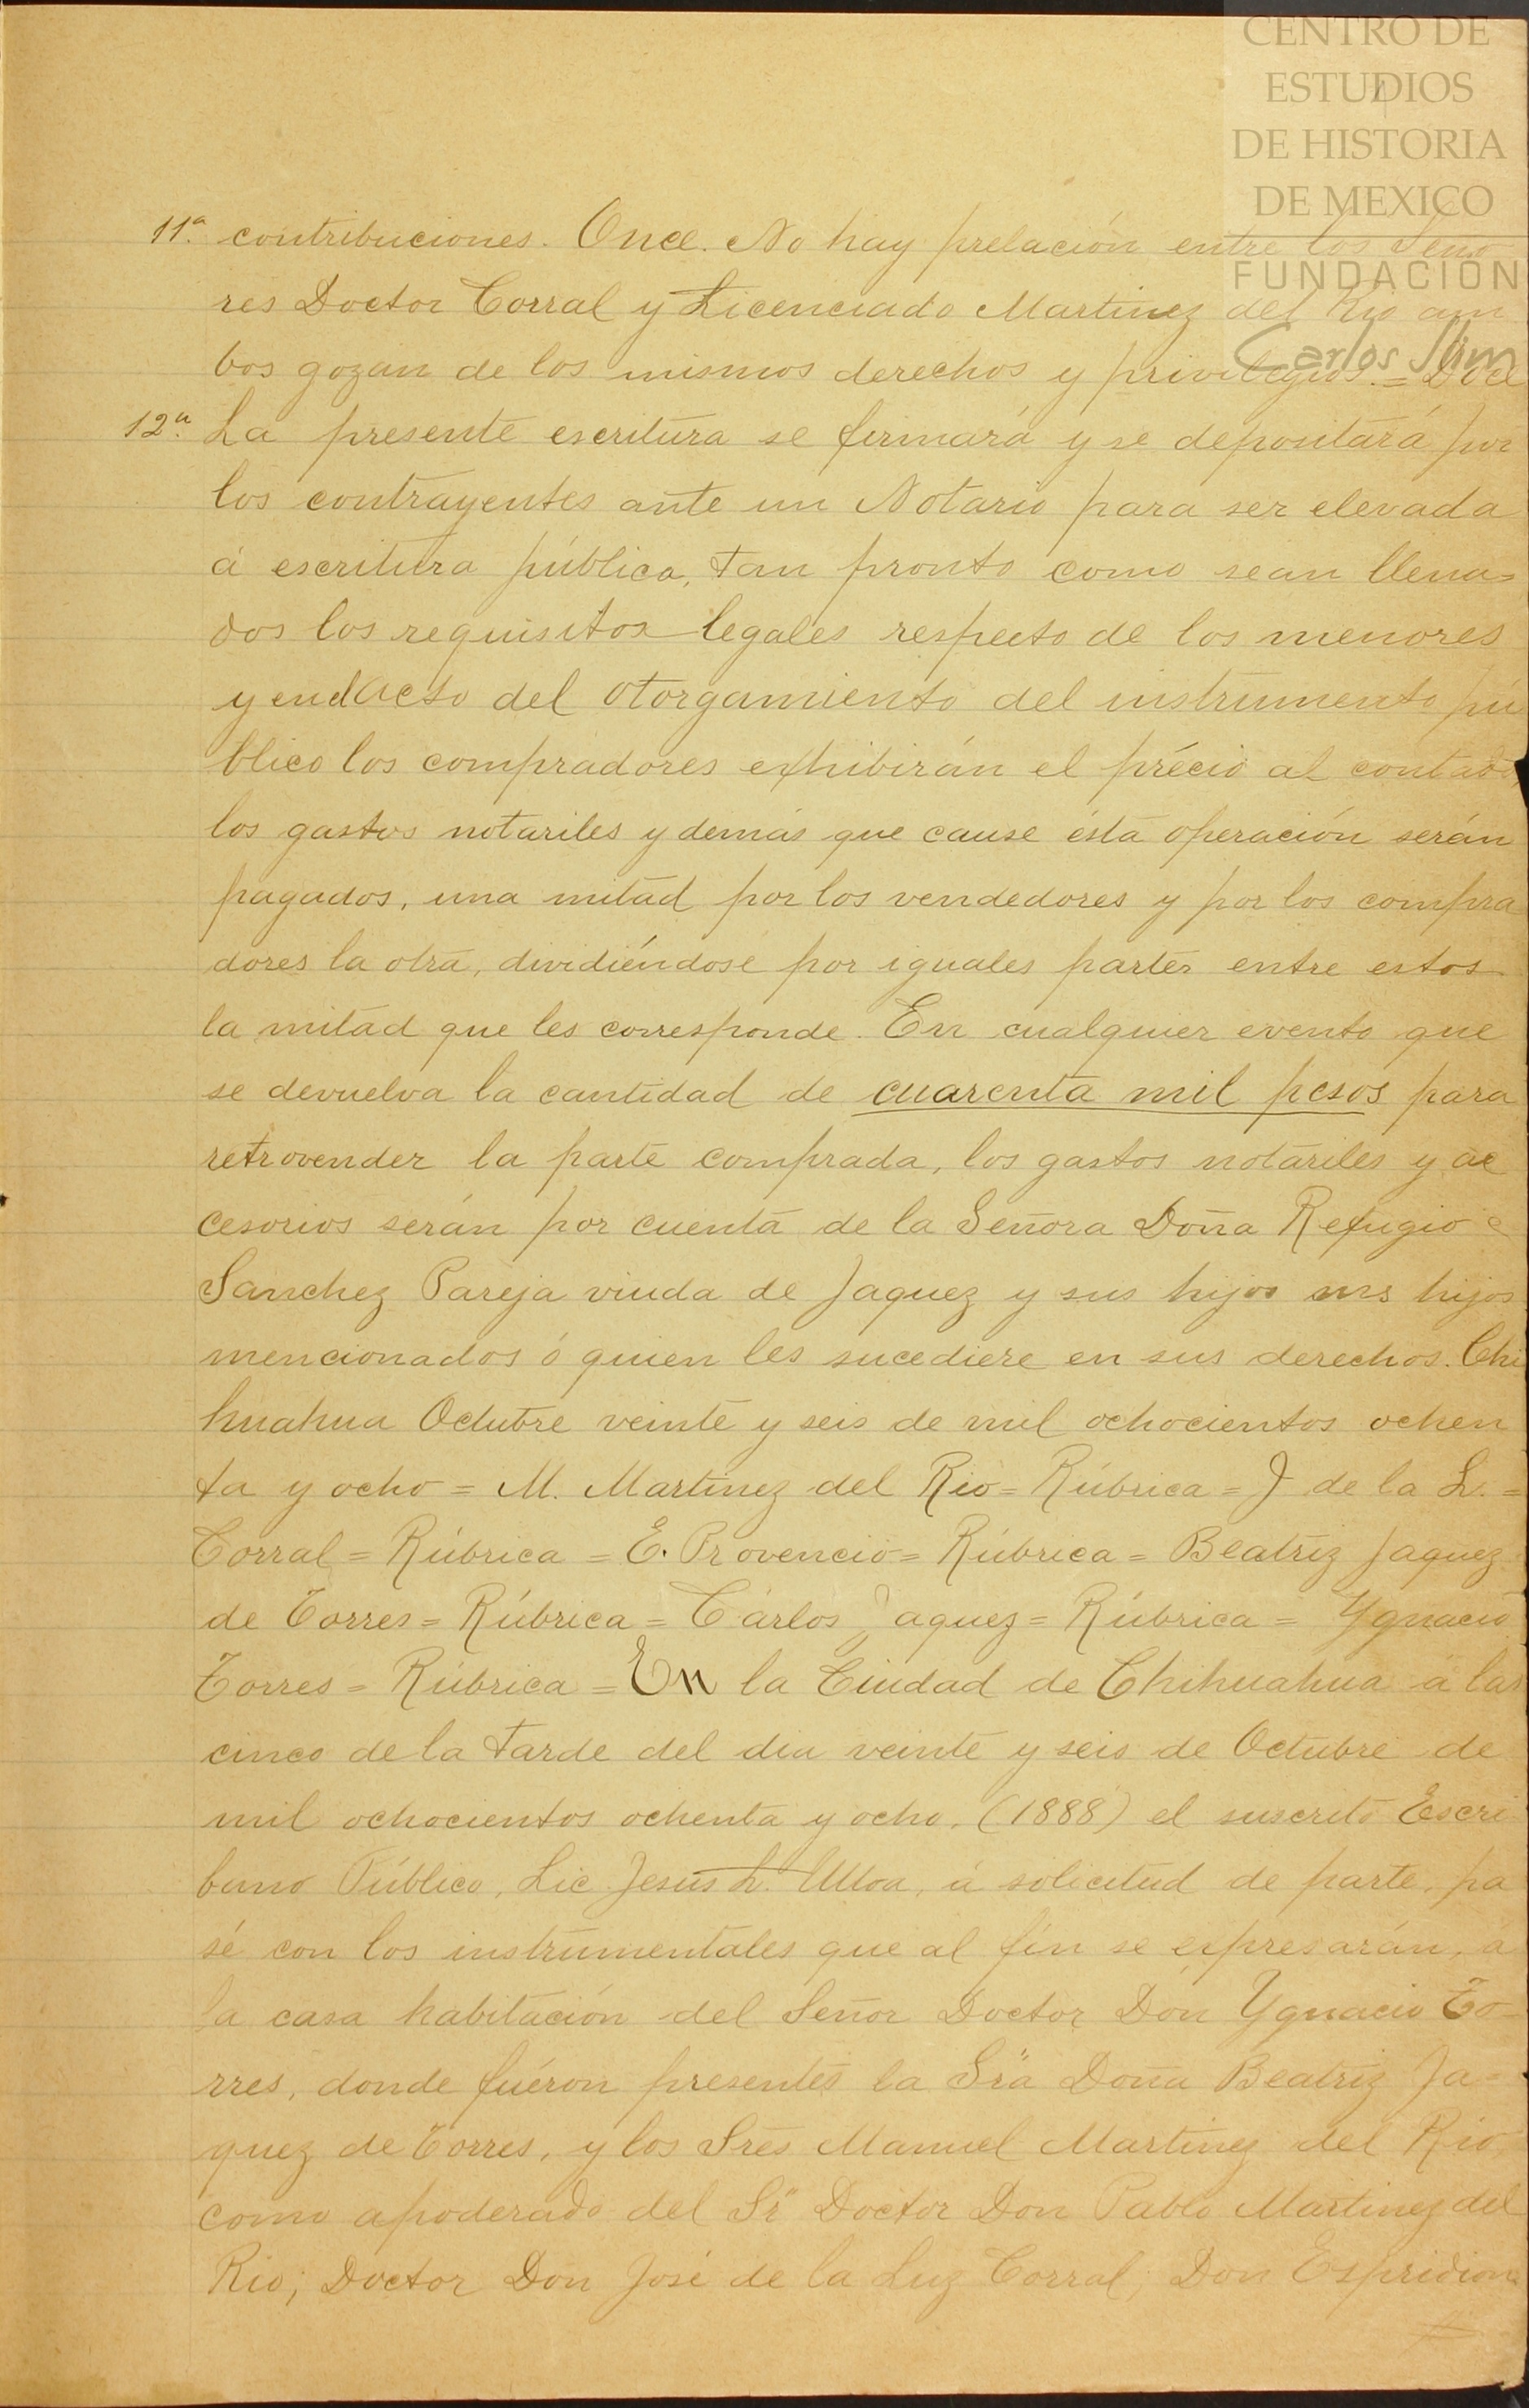 CENTRO DE
ESTUDIOS
DE HISTORIA
DE MEXICO
FUNDACIÓN
Carlos Slim
11ª. contribuciones. Once. No hay prelación entre los Seño
res Doctor Corral y Licenciado Martinez del Rio am
bos gozan de los mismos derechos y privilegios. = Doce
12ª. La presente escritura se firmará y se depositará por
los contrayentes ante un Notario para ser elevada
á escritura pública, tan pronto como sean llena=
dos los requisitos legales respecto de los menores
y en el acto del otorgamiento del instrumento pú
blico los compradores exhibirán el précio al contado,
los gastos notariles y demás que cause ésta operación serán
pagados, una mitad por los vendedores y por los compra
dores la otra, dividiéndose por iguales partes entre estos
la mitad que les corresponde. En cualquier evento que
se devuelva la cantidad de cuarenta mil pesos para
retrovender la parte comprada, los gastos notariles y ac
cesorios serán por cuenta de la Señora Doña Refugio
Sanchez Pareja viuda de Jaquez y sus hijos sus hijos
mencionados ó quien les sucediere en sus derechos. Chi
huahua Octubre veinte y seis de mil ochocientos ochen
ta y ocho = M. Martinez del Rio = Rúbrica = J. de la L. =
Corral = Rúbrica = E. Provencio = Rúbrica = Beatriz Jaquez
de Torres = Rúbrica = Cárlos Jaquez = Rúbrica = Ygnacio
Torres = Rúbrica = En la Ciudad de Chihuahua á las
cinco de la tarde del dia veinte y seis de Octubre de
mil ochocientos ochenta y ocho, (1888) el suscrito Escri
bano Público, Lic. Jesús L. Ulloa, á solicitud de parte, pa
sé con los instrumentales que al fin se expresarán, á
la casa habitación del Señor Doctor Don Ygnacio To-
rres, donde fuéron presentes la Srä Doña Beatriz Ja=
quez de Torres, y los Sres Manuel Martinez del Rio,
como apoderado del Sr Doctor Don Pablo Martinez del
Rio; Doctor Don José de la Luz Corral; Don Espridion